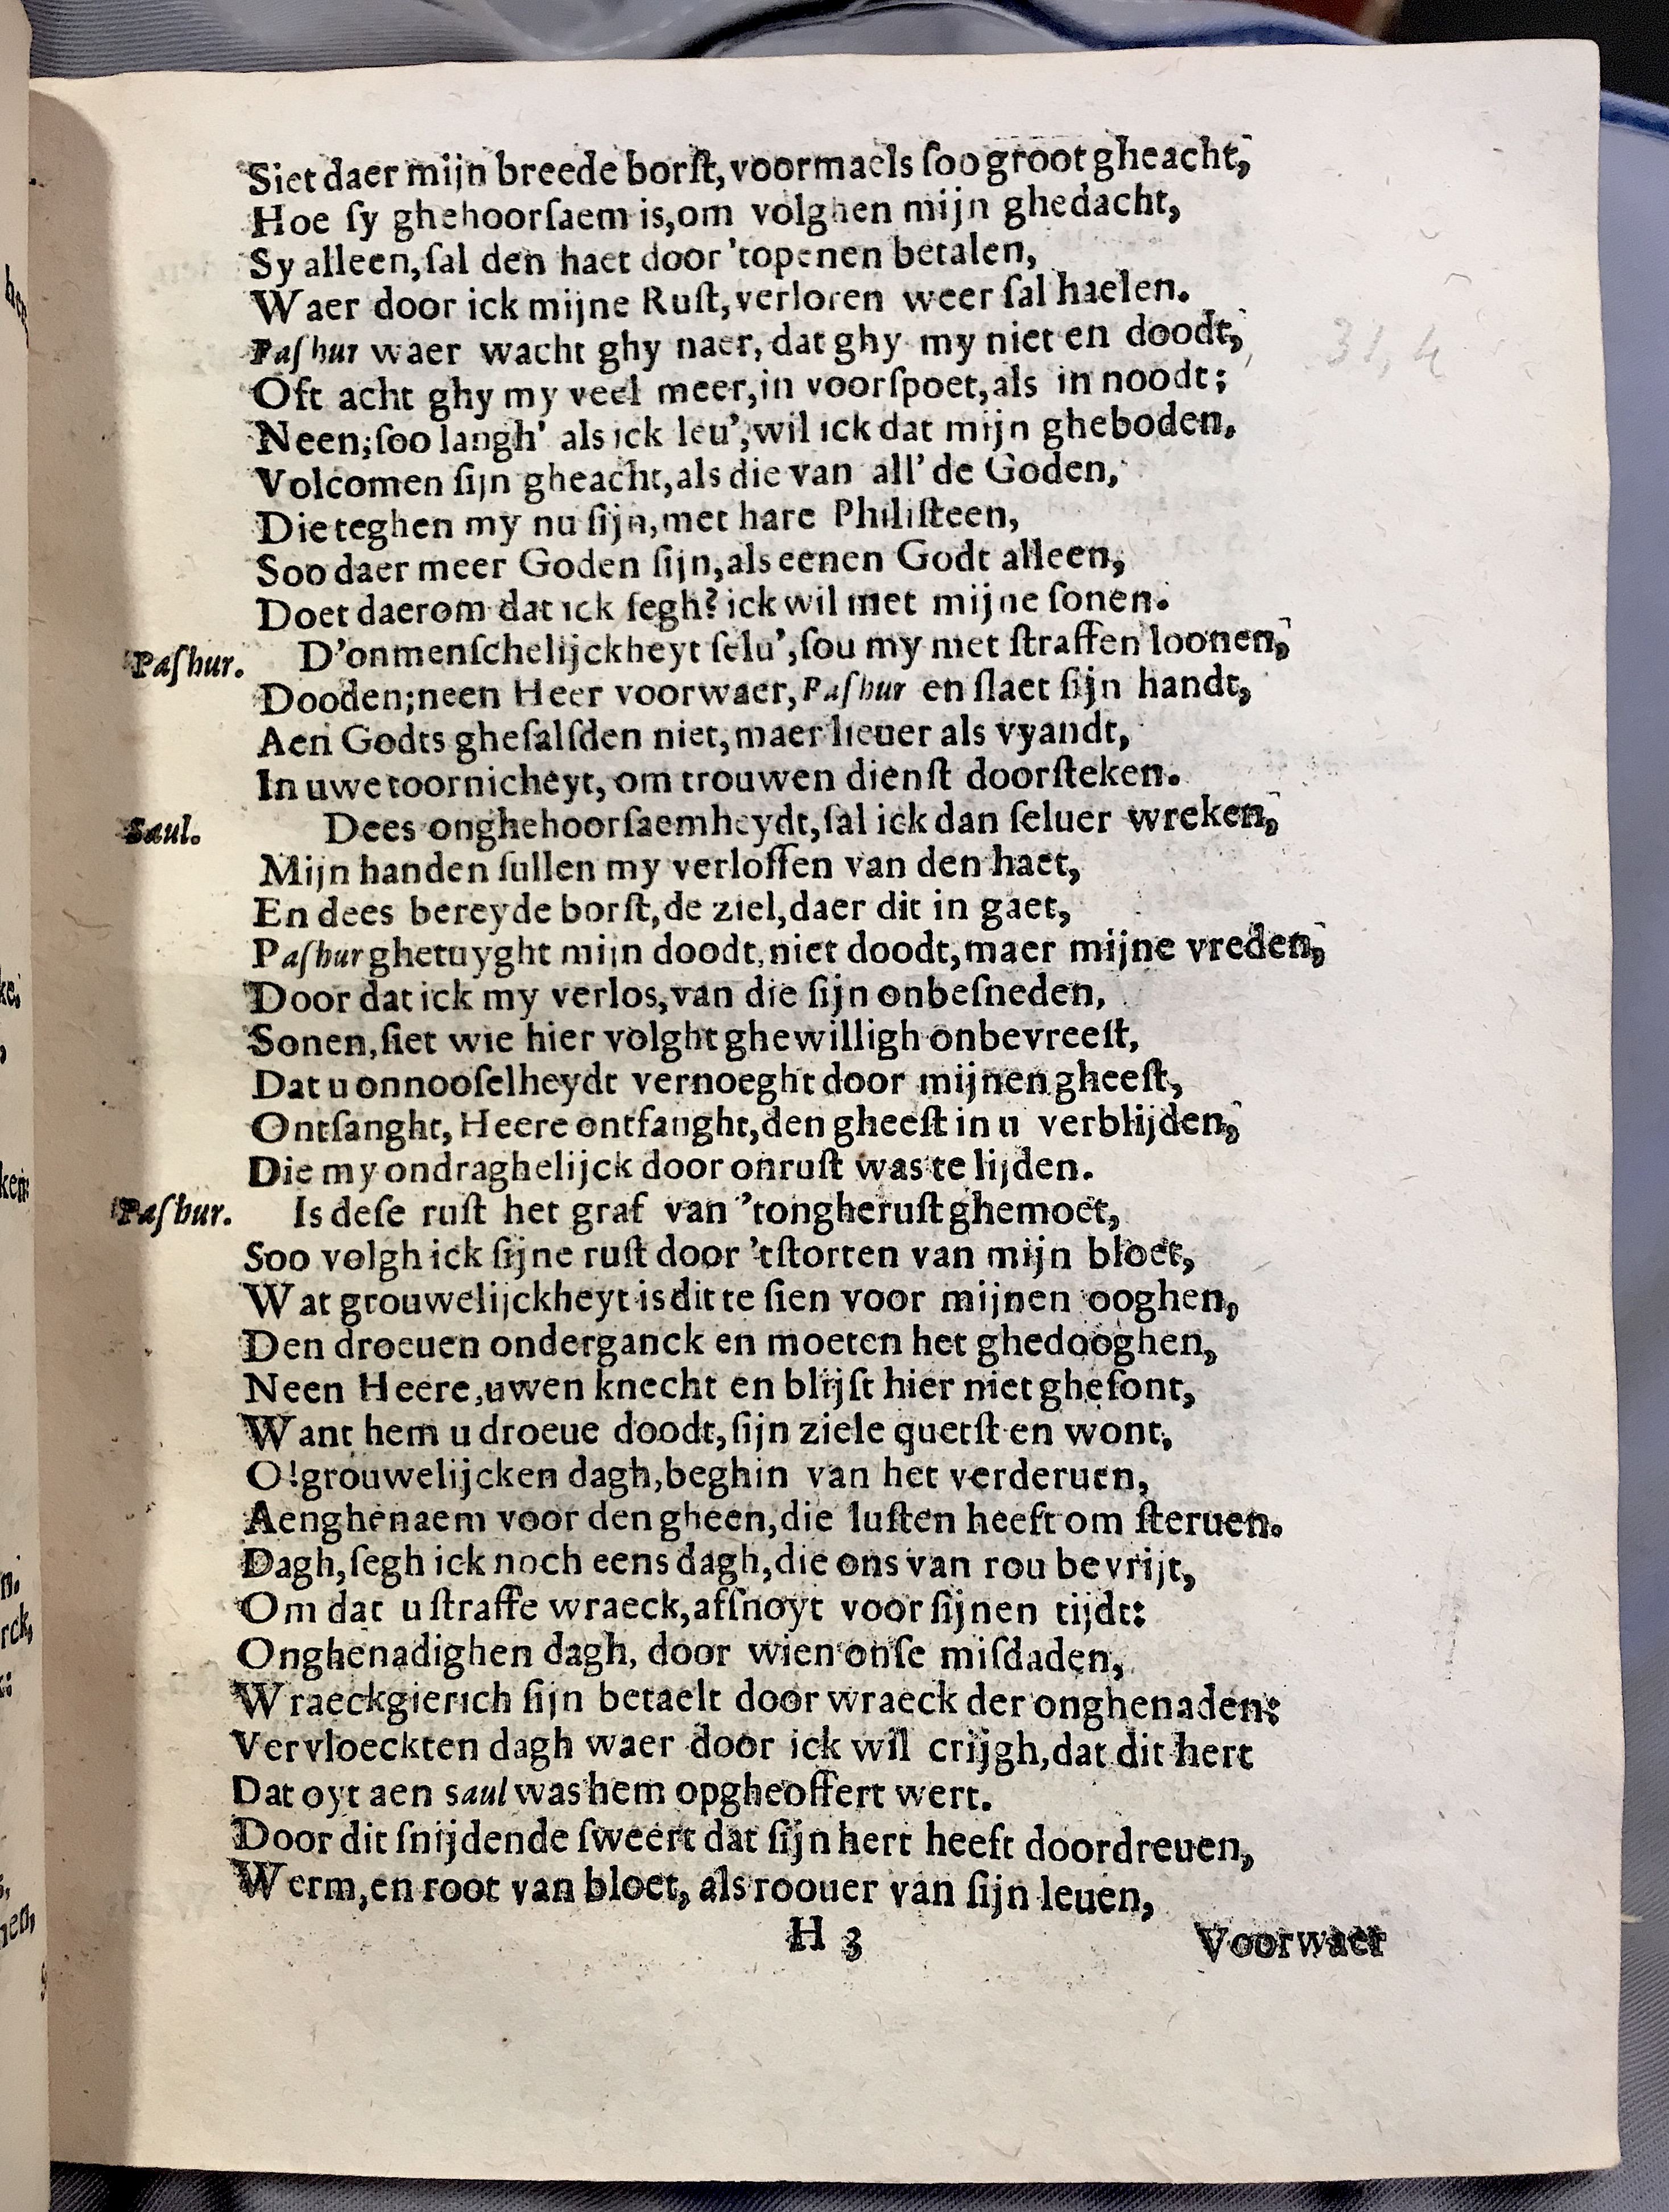 Siet daer mijn breede borſt, voormaels ſoo groot gheacht,
Hoe ſy ghehoorſaem is, om volghen mijn ghedacht,
Sy alleen, ſal den haet door 'topenen betalen,
Waer door ick mijne Ruſt, verloren weer ſal haelen.
Paſhur waer wacht ghy naer, dat ghy my niet en doodt,
Oft acht ghy my veel meer, in voorſpoet, als in noodt;
Neen; ſoo langh' als ick leu', wil ick dat mijn gheboden,
Volcomen ſijn gheacht, als die van all' de Goden,
Die teghen my nu ſijn, met hare Philiſteen,
Soo daer meer Goden ſijn, als eenen Godt alleen,
Doet daerom dat ick ſegh? ick wil met mijne ſonen.
Paſhur. D'onmenſchelijckheyt ſelu', ſou my met ſtraffen loonen,
Dooden; neen Heer voorwaer, Paſhur en ſlaet ſijn handt,
Aen Godts gheſalfden niet, maer lieuer als vyandt,
In uwe toornicheyt, om trouwen dienſt doorſteken.
Saul. Dees onghehoorſaemheydt, ſal ick dan ſeluer wreken,
Mijn handen ſullen my verloſſen van den haet,
En dees bereyde borſt, de ziel, daer dit in gaet,
Paſhur ghetuyght mijn doodt, niet doodt, maer mijne vreden,
Door dat ick my verlos, van die ſijn onbeſneden,
Sonen, ſiet wie hier volght ghewilligh onbevreeſt,
Dat u onnooſelheydt vernoeght door mijnen gheeſt,
Ontfanght, Heere ontfanght, den gheeſt in u verblijden,
Die my ondraghelijck door onruſt was te lijden.
Paſhur. Is deſe ruſt het graf van 'tongheruſt ghemoet,
Soo volgh ick ſijne ruſt door 'tſtorten van mijn bloet,
Wat grouwelijckheyt is dit te ſien voor mijnen ooghen,
Den droeuen onderganck en moeten het ghedooghen,
Neen Heere, uwen knecht en blijft hier niet gheſont,
Want hem u droeue doodt, ſijn ziele quetſt en wont,
O! grouwelijcken dagh, beghin van het verderuen,
Aenghenaem voor den gheen, die luſten heeft om ſteruen.
Dagh, ſegh ick noch eens dagh, die ons van rou bevrijt,
Om dat u ſtraffe wraeck, afſnoyt voor ſijnen tijdt:
Onghenadighen dagh, door wien onſe miſdaden,
Wraeckgierich ſijn betaelt door wraeck der onghenaden:
Vervloeckten dagh waer door ick wil crijgh, dat dit hert
Dat oyt aen saul was hem opgheoffert wert.
Door dit ſnijdende ſweert dat ſijn hert heeft doordreuen,
Werm, en root van bloet, als roouer van ſijn leuen,
H 3 Voorwaer